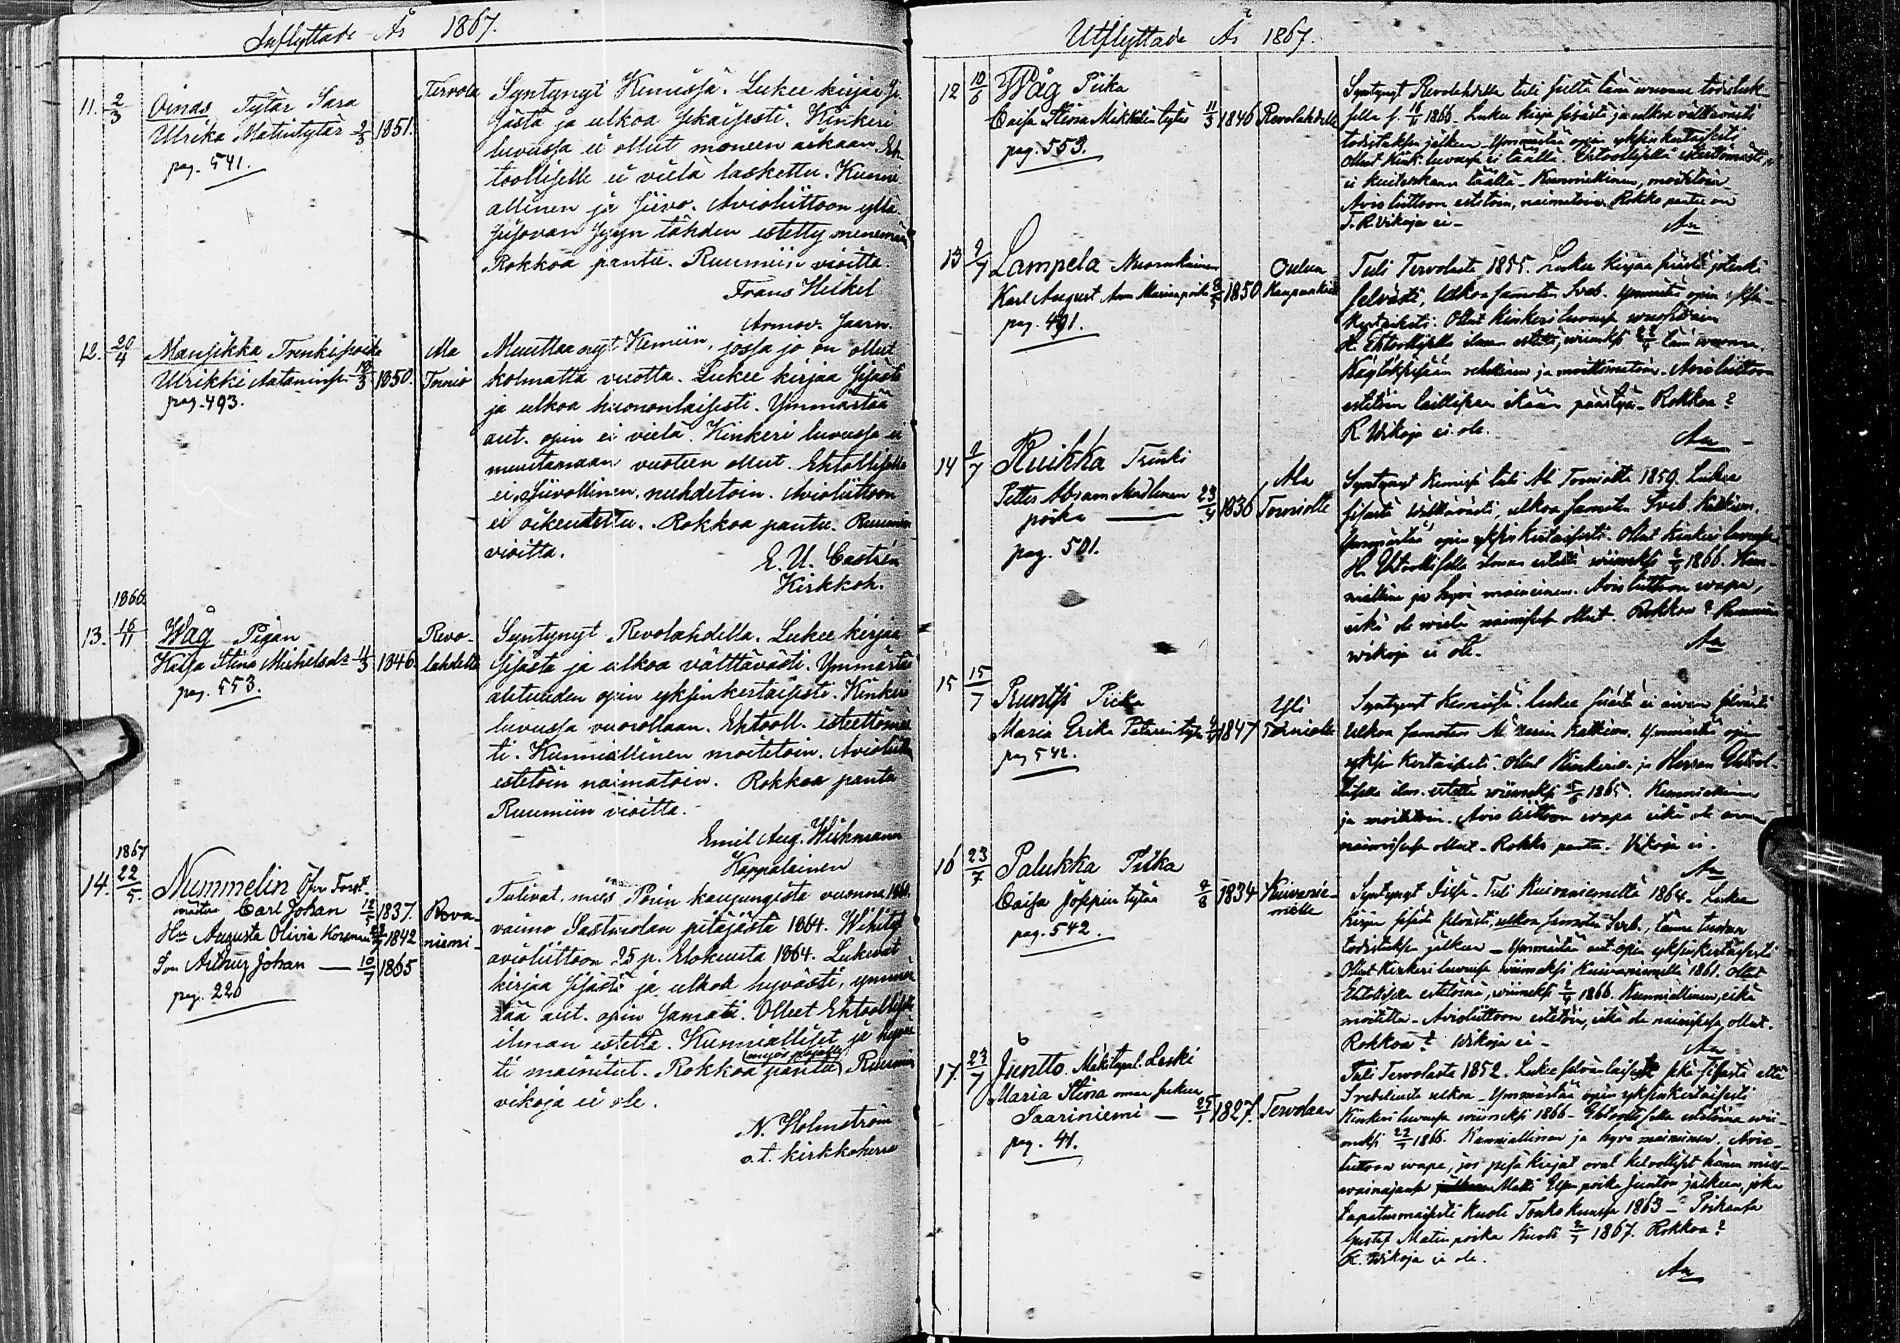 Inflyttade År 1867.
11. 2/3 Oinas, Tytär Sara
Ulrika Matintytär 2/3 1851.
pag. 541.
Tervola
Syntynyt Kemissä. Lukee kirjaa Si-
sästä ja ulkoa Jokaisesti. Kinkeri
luvussa ei ollut moneen aikaan. Eh-
toolliselle ei vielä laskettu. Kunni-
allinen ja siivo. Avioliittoon
tähden estetty menemän
Rokkoa pantu. Ruumiin vioitta.
Frans Heikel
Armov. Saarn.
12. 20/4 Mansikka Trenkipoika
Ulrikki Aataminp. 1850.
pag. 493.
Ala
Tornio
Muuttaa nyt Kemiin, jossa jo on ollut
kolmatta vuotta. Lukee kirjaa sisästä
ja ulkoa huononlaisesti. Ymmärtää
aut. opin ei vielä. Kinkeri luvussa ei
muutamaan vuoteen ollut. Ehtollisella
ei. Siivollinen, nuhdetoin. Avioliittoon
ei oikeutettu. Rokkoa pantu. Ruumiin
vioitta.
E. U. Castrén
Kirkkoh.
1866.
13. 16/11 Wåg Pigan
Kaisa Stina Michelsdr 11/3 1846.
pag. 553.
Revo-
lahdelta
Syntynyt Revolahdella. Lukee kirjaa
sisästä ja ulkoa välttävästi. Ymmärtää
autuuden opin yksinkertaisesti. Kinkeri
luvussa vuorollaan. Ehtooll. esteettömäs-
ti. Kunniallinen moitetoin. Avioliittoon
estetöin naimatoin. Rokkoa pantu
Ruumiin vioitta.
Emil Aug. Wichmann
Kappalainen
1867
14. 22/5. Nummelin Öfv. Forst-
mästar Carl Johan 1837.
Hu Augusta Olivia 1842
Son Arthur Johan — 10/7 1865
pag. 220
Rova-
niemi
Tulivat, mies Porin kaupungista vuonna
vaimo Sastmolan pitäjästä 1864. Wihityt
avioliittoon 25 p. Elokuuta 1864. Lukevat
kirjaa sisästä ja ulkoa hyvästi, ymmär-
tää aut. opin samati. Olleet Ehtoollisella
ilman estettä. Kunnialliset ja hyväs-
ti mainitut. Rokkoa (myös pojalla) pantu. Ruumiin
vikoja ei ole.
N. Holmström
v.t. kirkkoherra
Utflyttade År 1867.
12 10/6 Wåg Piika
Caisa Stina Mikkelin tytär 11/3 1846 Revolahdelle
pag. 553.
Syntynyt Revolahdella tuli sieltä tänne todistuk-
sella 16/11 1866. Lukee kirja sisästä ja ulkoa välttävästi
todistuksen jälkeen. Ymmärtää opin yksinkertaisesti.
Ollut Kink: luvussa ei täällä. Ehtoollisella esteettömästi,
ei kuitenkaan täällä. Kunniallinen, moitetoin.
Avioliittoon estetöin, naimatoin. Rokko pantu on
T. R. Vikoja ei.
An
13 9/7 Lampela Nuorukainen
Karl August Anna Marianpoika 1850
pag. 491.
Oulun
Kaupunkiin
Tuli Tervolasta 1855. Lukee kirjaa sisästä jotenki
selvästi, ulkoa samoten Sveb. Ymmärtää opin yksin-
kertaisesti. Ollut Kinkeri luvussa
H. Ehtoollisella ilman estettä, viimeksi tänä vuonna.
Käytöksessään rehellinen ja moittimatoin. Avioliittoon
estetöin laillisen ikään päästyä. Rokkoa?
R. Wikoja ei ole.
An
14 9/7 Ruikka Trenki
Petter Abram
poika — 23/4 1836
pag. 501.
Ala
Torniolle
Syntynyt Kemissä tuli Ala Torniolta 1859. Lukee
sisästä välttävästi, ulkoa samoten Sveb. Katkism.
Ymmärtää opin yksinkertaisesti. Ollut kinkeri luvussa
H. Ehtoollisella ilman estettä viimeksi 1866. Kun-
niallinen ja hyvä maineinen. Avioliittoon wapa,
eikä ole wielä naimisissa ollut. Rokkoa? Ruumiin
wikoja ei ole.
An
15 15/7 Runtti Piika
Maria Erika Petarintytär 1847
pag 542.
Yli
Torniolle
Syntynyt Kemissä. Lukee sisästä ei aivan selvästi
ulkoa samoten Katkism. Ymmärtää opin
yksin kertaisesti. Ollut Kinkeris. ja Herran Ehtool-
lisella ilm. estettä viimeksi 1865. Kunniallinen
ja moitetoin. Avioliittoon wapa eikä ole ennen
naimisissa ollut. Rokko pantu. Vikoja ei.
An
16 23/7 Palukka Piika
Caisa Joppin tytär 9/8 1834
pag. 542.
Kuivanie-
melle
Syntynyt Iissä. Tuli Kuivaniemeltä 1864. Lukee
kirjan sisästä selvästi, ulkoa samoten Sveb., tänne tuodun
todistuksen jälkeen. Ymmärtää aut. opin yksinkertaisesti
Ollut Kinkeri luvussa viimeksi Kuivaniemellä 1861. Ollut
Ehtoollisella esteetönnä, viimeksi 1866. Kunniallinen, eikä
moitetta. Avioliittoon estetöin, eikä ole naimisissa ollut.
Rokkoa? Wikoja ei.
An
17. 23/7 Juntto. Mäkitupal. Leski
Maria Stina
Saariniemi — 1827. Tervolaan
pag. 41.
Tuli Tervolasta 1852. Lukee selvänlaisesti sekä sisästä että
Svebeliusta ulkoa. Ymmärtää opin yksinkertaisesti
Kinkeri luvussa viimeksi 1866. Ehtoollisella estetönnä vii-
meksi 1866. Kunniallinen ja hyvä maineinen. Avio-
liittoon wapa, jos pesä kirjat ovat kelvolliset hänen mies-
vainajansa Matti poika Junton jälkeen, joka
tapaturmaisesti kuoli kuussa 1863. Poikansa
Gustaf Matinpoika kuoli 1867. Rokkoa?
R. Wikoja ei ole.
An